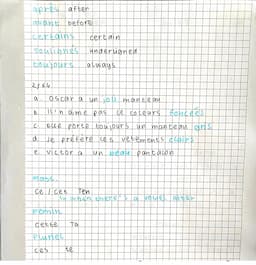 après after
avant before
certains certain
soulignés underligned
toujours always
2p64
a. Oscar a un joli manteau
b. Il n'aime pas le coleurs foncées
c. elle porte toujours un manteau gris
d. Je préfère les vêtements clairs
e. Victor a un beau pantalon
masc.
ce / cet Ten
when there's a vowel after
Femin.
cette Ta
Pluriel
ces te